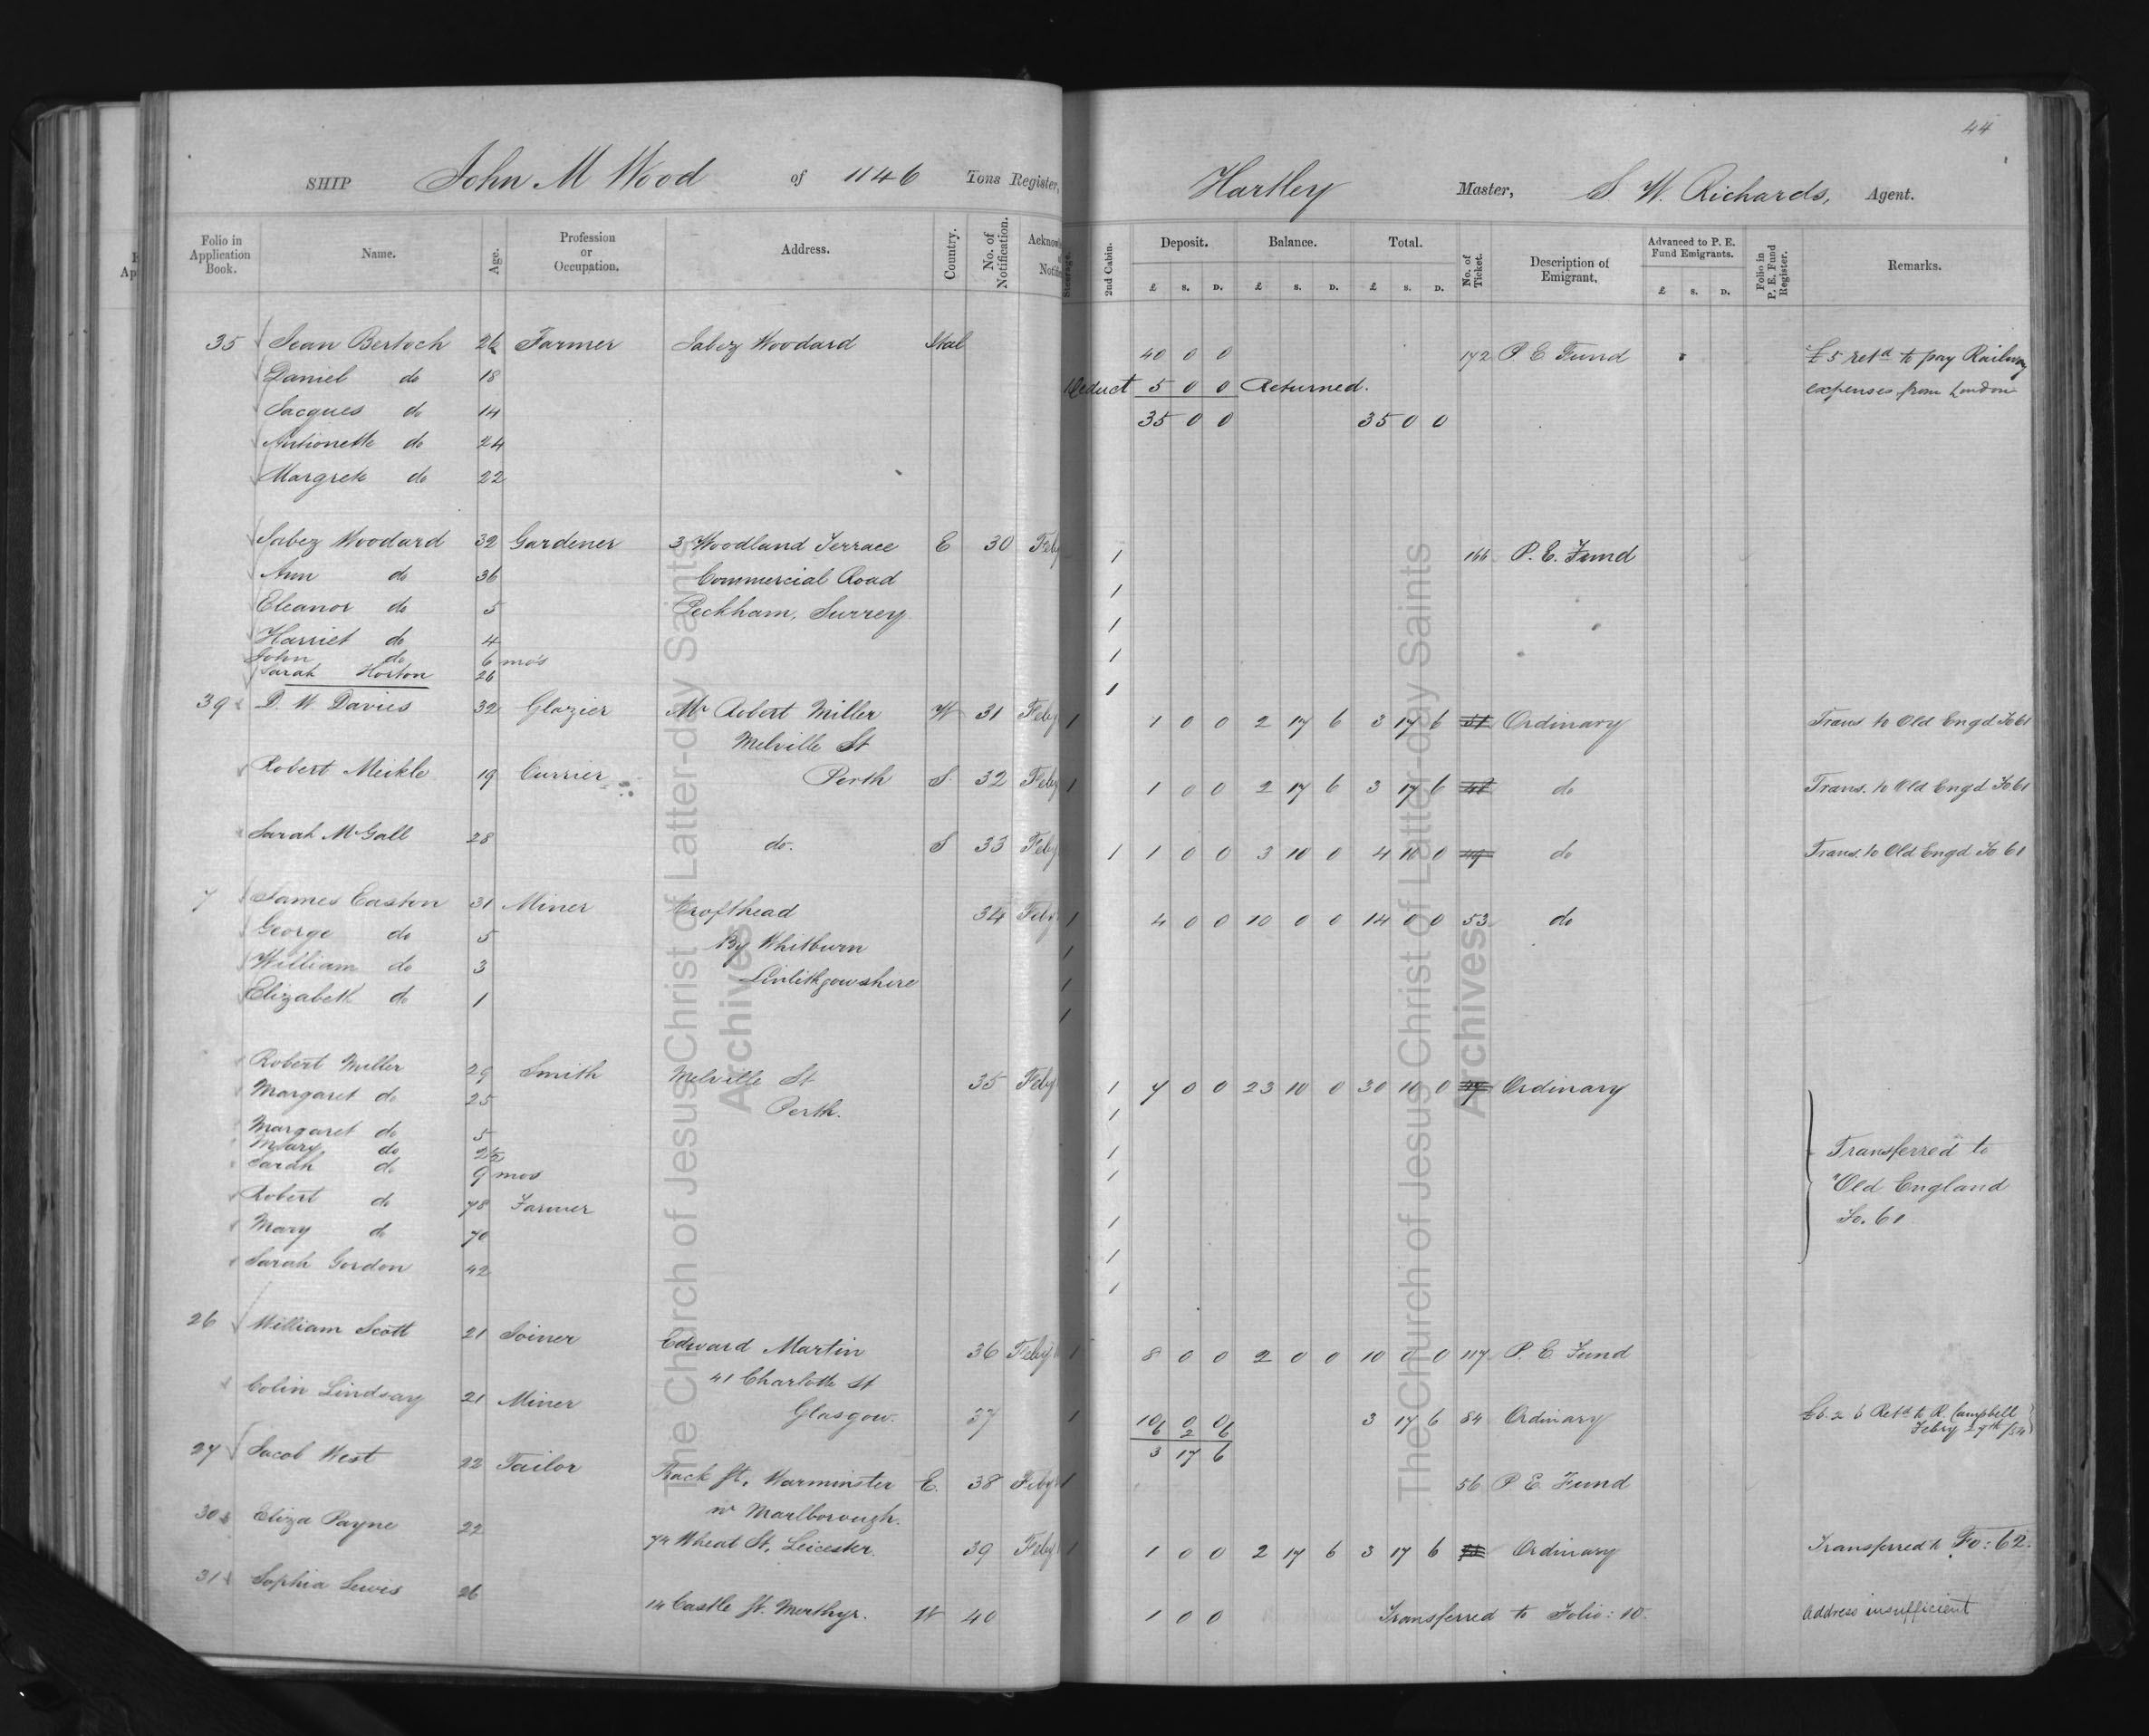 44
SHIP John M Wood of 1146 Tons Register, Hartley Master, S. W. Richards, Agent.
Folio in Application Book. Name. Age. Profession or Occupation. Address. Country. No. of Notification. Steerage. 2nd Cabin. Deposit. £ S. D. Balance. £ S. D. Total. £ S. D. No. of Ticket. Description of Emigrant. Advanced to P. E. Fund Emigrants. £ S. D. Folio in P. E. Fund Register. Remarks.
35 Jean Bertoch 26 Farmer Jabez Woodard Ital 40 0 0 172 P. E Fund £5 retd to pay Railway
Daniel do 18 Deduct 5 0 0 Returned. expenses from London
Jacques do 14 35 0 0 35 0 0
Antionette do 24
Margrete do 22
Jabez Woodard 32 Gardener 3 Woodland Terrace E 30 Feby 1 166 P. E. Fund
Ann do 36 Commercial Road 1
Eleanor do 5 Peckham, Surrey 1
Harriet do 4 1
John do 6 mos
Sarah Horton 26 1
39 D. W. Davies 32 Glazier Mr Robert Miller W 31 Feby 1 1 0 0 2 17 6 3 17 6 Ordinary Trans to Old Engd Fo 61
Melville St
Robert Meikle 19 Currier Perth S. 32 Feby 1 1 0 0 2 17 6 3 17 6 do Trans. to Old Engd Fo 61
Sarah McGall 28 do. S 33 Feby 1 1 0 0 3 10 0 4 10 0 do Trans. to Old Engd Fo 61
7 James Easton 31 Miner Crofthead 34 Feby 1 4 0 0 10 0 0 14 0 0 53 do
George do 5 By Whitburn 1
William do 3 Linlithgowshire 1
Elizabeth do 1 1
Robert Miller 29 Smith Melville St 35 Feby 1 7 0 0 23 10 0 30 10 0 Ordinary
Margaret do 25 Perth. 1
Margaret do 5 1
Mary do 2½ Transferred to
Sarah do 9 mos 1 "Old England
Robert do 78 Farmer 1 Fo. 61
Mary do 70 1
Sarah Gordon 42 1
26 William Scott 21 Joiner Edward Martin 36 Feby 1 8 0 0 2 0 0 10 0 0 117 P. E. Fund
41 Charlotte St
Colin Lindsay 21 Miner Glasgow. 37 1 10 0 0 3 17 6 84 Ordinary £6. 2 6 Retd to R. Campbell
6 2 6 Feby 27th/54
3 17 6
27 Jacob West 22 Tailor Back St. Warminster E. 38 Feby 1 56 P E Fund
nr Marlborough.
30 Eliza Payne 22 74 Wheat St, Leicester. 39 Feby 1 1 0 0 2 17 6 3 17 6 Ordinary Transferred to Fo: 62.
31 Sophia Lewis 26 14 Castle St. Merthyr. W 40 1 0 0 Transferred to Folio: 10. Address insufficient
The Church of Jesus Christ of Latter-day Saints
Archives
The Church of Jesus Christ of Latter-day Saints
Archives